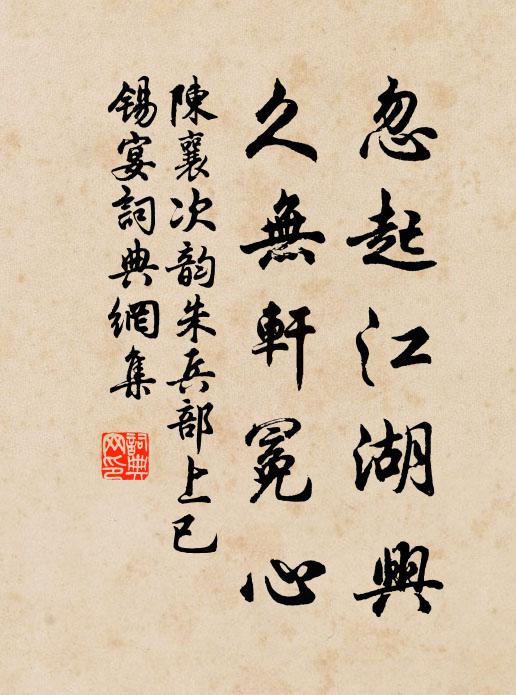 忽起江湖興
久無軒冕心
陳襄次韵朱兵部上巳
錫宴詞典網集
詞典
网印